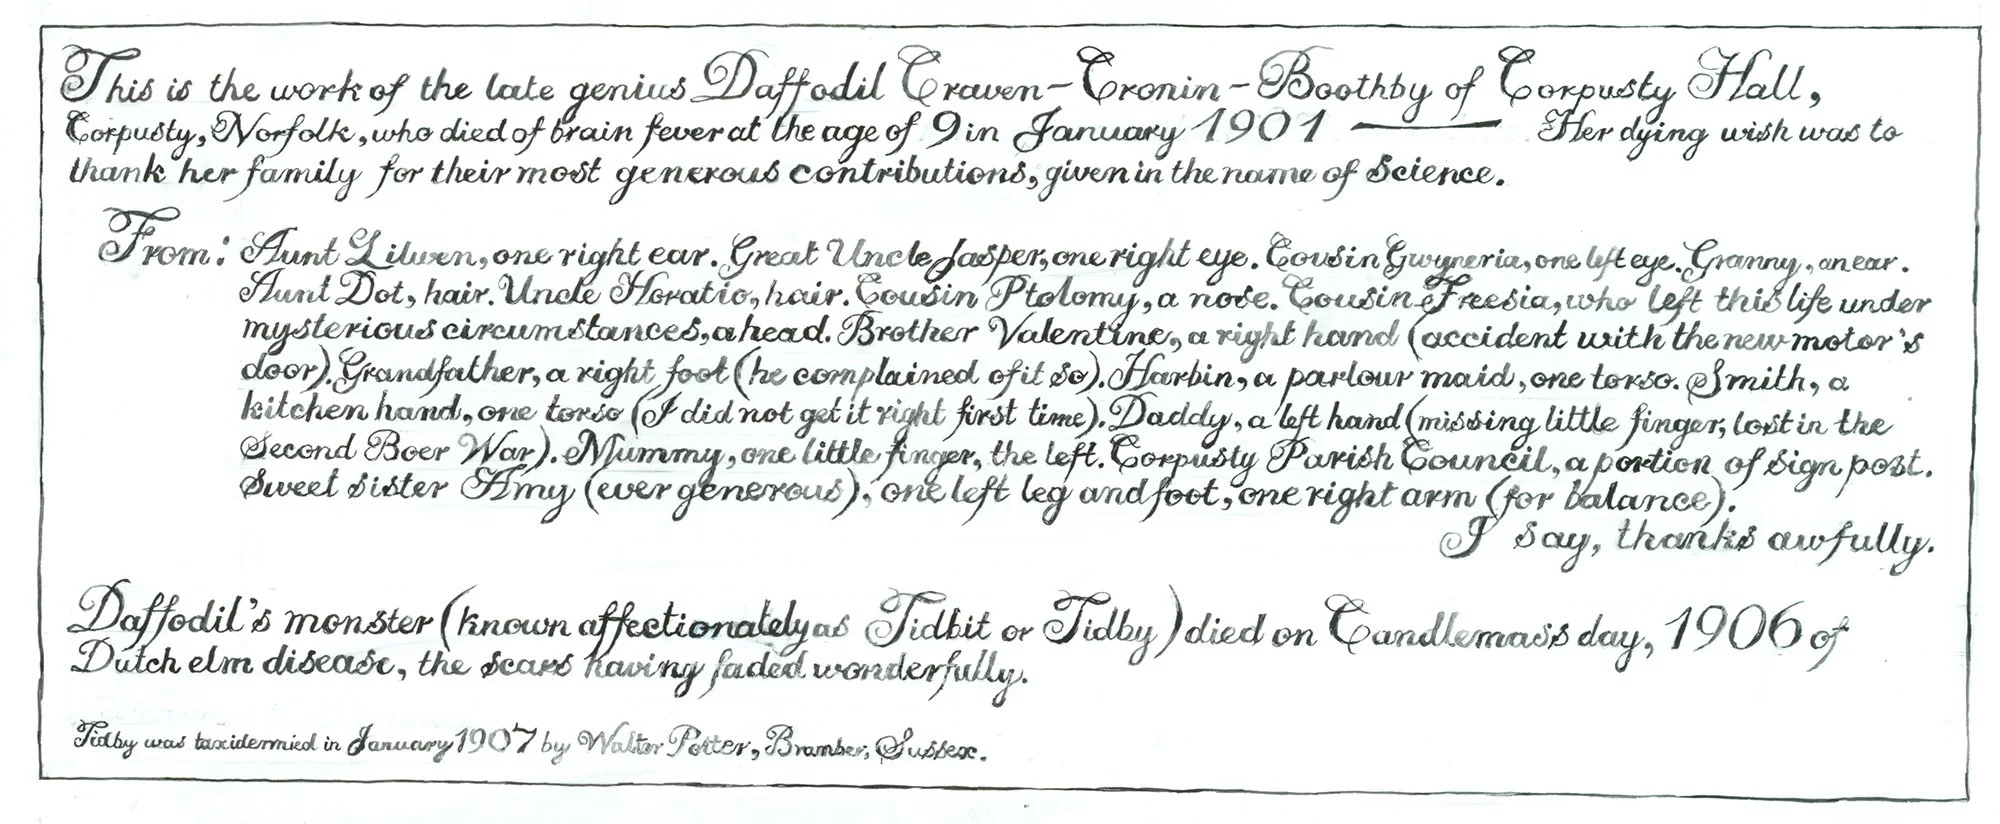 This is the work of the late genius Daffodil Craven-Cronin-Boothby of Corpusty Hall,
Corpusty, Norfolk, who died of brain fever at the age of 9 in January 1901 — Her dying wish was to
thank her family for their most generous contributions, given in the name of Science.
From: Aunt Lilwen, one right ear. Great Uncle Jasper, one right eye. Cousin Gwyneria, one left eye. Granny, an ear.
Aunt Dot, hair. Uncle Horatio, hair. Cousin Ptolomy, a nose. Cousin Freesia, who left this life under
mysterious circumstances, a head. Brother Valentine, a right hand (accident with the new motor's
door). Grandfather, a right foot (he complained of it so). Harbin, a parlour maid, one torso. Smith, a
kitchen hand, one torso (I did not get it right first time). Daddy, a left hand (missing little finger, lost in the
Second Boer War). Mummy, one little finger, the left. Corpusty Parish Council, a portion of sign post.
Sweet sister Amy (ever generous), one left leg and foot, one right arm (for balance).
I say, thanks awfully.
Daffodil's monster (known affectionately as Tidbit or Tidby) died on Candlemass day, 1906 of
Dutch elm disease, the scars having faded wonderfully.
Tidby was taxidermied in January 1907 by Walter Potter, Bramber, Sussex.